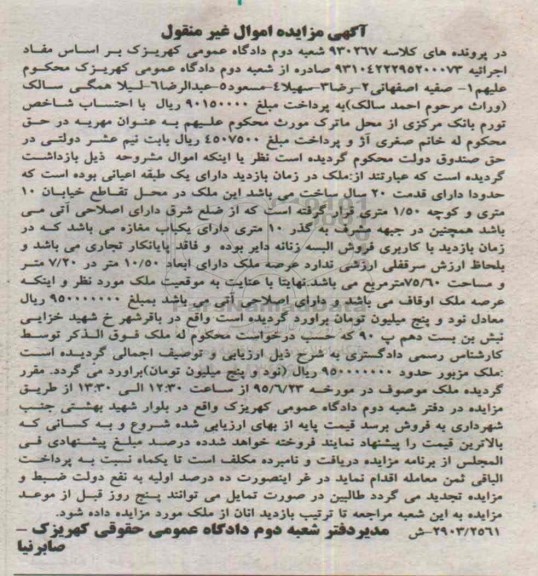 آگهی مزایده اموال غیر منقول
در پرونده های کلاسه ۹۳۰۲۶۷ شعبه دوم دادگاه عمومی کهریزک بر اساس مفاد
اجرائیه ۹۳۱۰۴۲۲۲۹۵۲۰۰۰۷۳ صادره از شعبه دوم دادگاه عمومی کهریزک محکوم
علیهم ۱- صفیه اصفهانی۲-رضا۳-سهیلا۴-مسعود۵-عبدالرضا۶-لیلا همگی سالک
(وراث مرحوم احمد سالک)به پرداخت مبلغ ۹۰۱۵۰۰۰۰ ریال با احتساب شاخص
تورم بانک مرکزی از محل ماترک مورث محکوم علیهم به عنوان مهریه در حق
محکوم له خانم صغری آژ و پرداخت مبلغ ۴۵۰۷۵۰۰ ریال بابت نیم عشر دولتی در
حق صندوق دولت محکوم گردیده است نظر یا اینکه اموال مشروحه ذیل بازداشت
گردیده است که عبارتند از:ملک در زمان بازدید دارای یک طبقه اعیانی بوده است که
حدودا دارای قدمت ۲۰ سال ساخت می باشد این ملک در محل تقاطع خیابان ۱۰
متری و کوچه ۱/۵۰ متری قرار گرفته است که از ضلع شرق دارای اصلاحی آتی می
باشد همچنین در جبهه مشرف به گذر ۱۰ متری دارای یکباب مغازه می باشد که در
زمان بازدید با کاربری فروش البسه زنانه دایر بوده و فاقد پایانکار تجاری می باشد و
بلحاظ ارزش سرقفلی ارزشی ندارد عرصه ملک دارای ابعاد ۱۰/۵۰ متر در ۷/۲۰ متر
و مساحت ۷۵/۶۰مترمربع می باشد.نهایتا با عنایت به موقعیت ملک مورد نظر و اینکه
عرصه ملک اوقاف می باشد و دارای اصلاحی آتی می باشد بمبلغ ۹۵۰۰۰۰۰۰۰ ریال
معادل نود و پنج میلیون تومان براورد گردیده است واقع در باقرشهر خ شهید خزایی
نبش بن بست دهم پ ۹۰ که حسب درخواست محکوم له ملک فوق الذکر توسط
کارشناس رسمی دادگستری به شرح ذیل ارزیابی و توصیف اجمالی گردیده است
:ملک مزبور حدود ۹۵۰۰۰۰۰۰۰ ریال (نود و پنج میلیون تومان)براورد می گردد. مقرر
گردیده ملک موصوف در مورخه ۹۵/۶/۲۳ از ساعت ۱۲:۳۰ الی ۱۳:۳۰ از طریق
مزایده در دفتر شعبه دوم دادگاه عمومی کهریزک واقع در بلوار شهید بهشتی جنب
شهرداری به فروش برسد قیمت پایه از بهای ارزیابی شده شروع و به کسانی که
بالاترین قیمت را پیشنهاد نمایند فروخته خواهد شدده درصد مبلغ پیشنهادی فی
المجلس از برنامه مزایده دریافت و نامبرده مکلف است تا یکماه نسبت به پرداخت
الباقی ثمن معامله اقدام نماید در غر اینصورت ده درصد اولیه به نفع دولت ضبط و
مزایده تجدید می گردد طالبین در صورت تمایل می توانند پنج روز قبل از موعد
مزایده به این شعبه مراجعه تا ترتیب بازدید انان از ملک مورد مزایده داده شود.
۲۹۰۳/۲۵۶۱-ش مدیردفتر شعبه دوم دادگاه عمومی حقوقی کهریزک –
صابرنیا